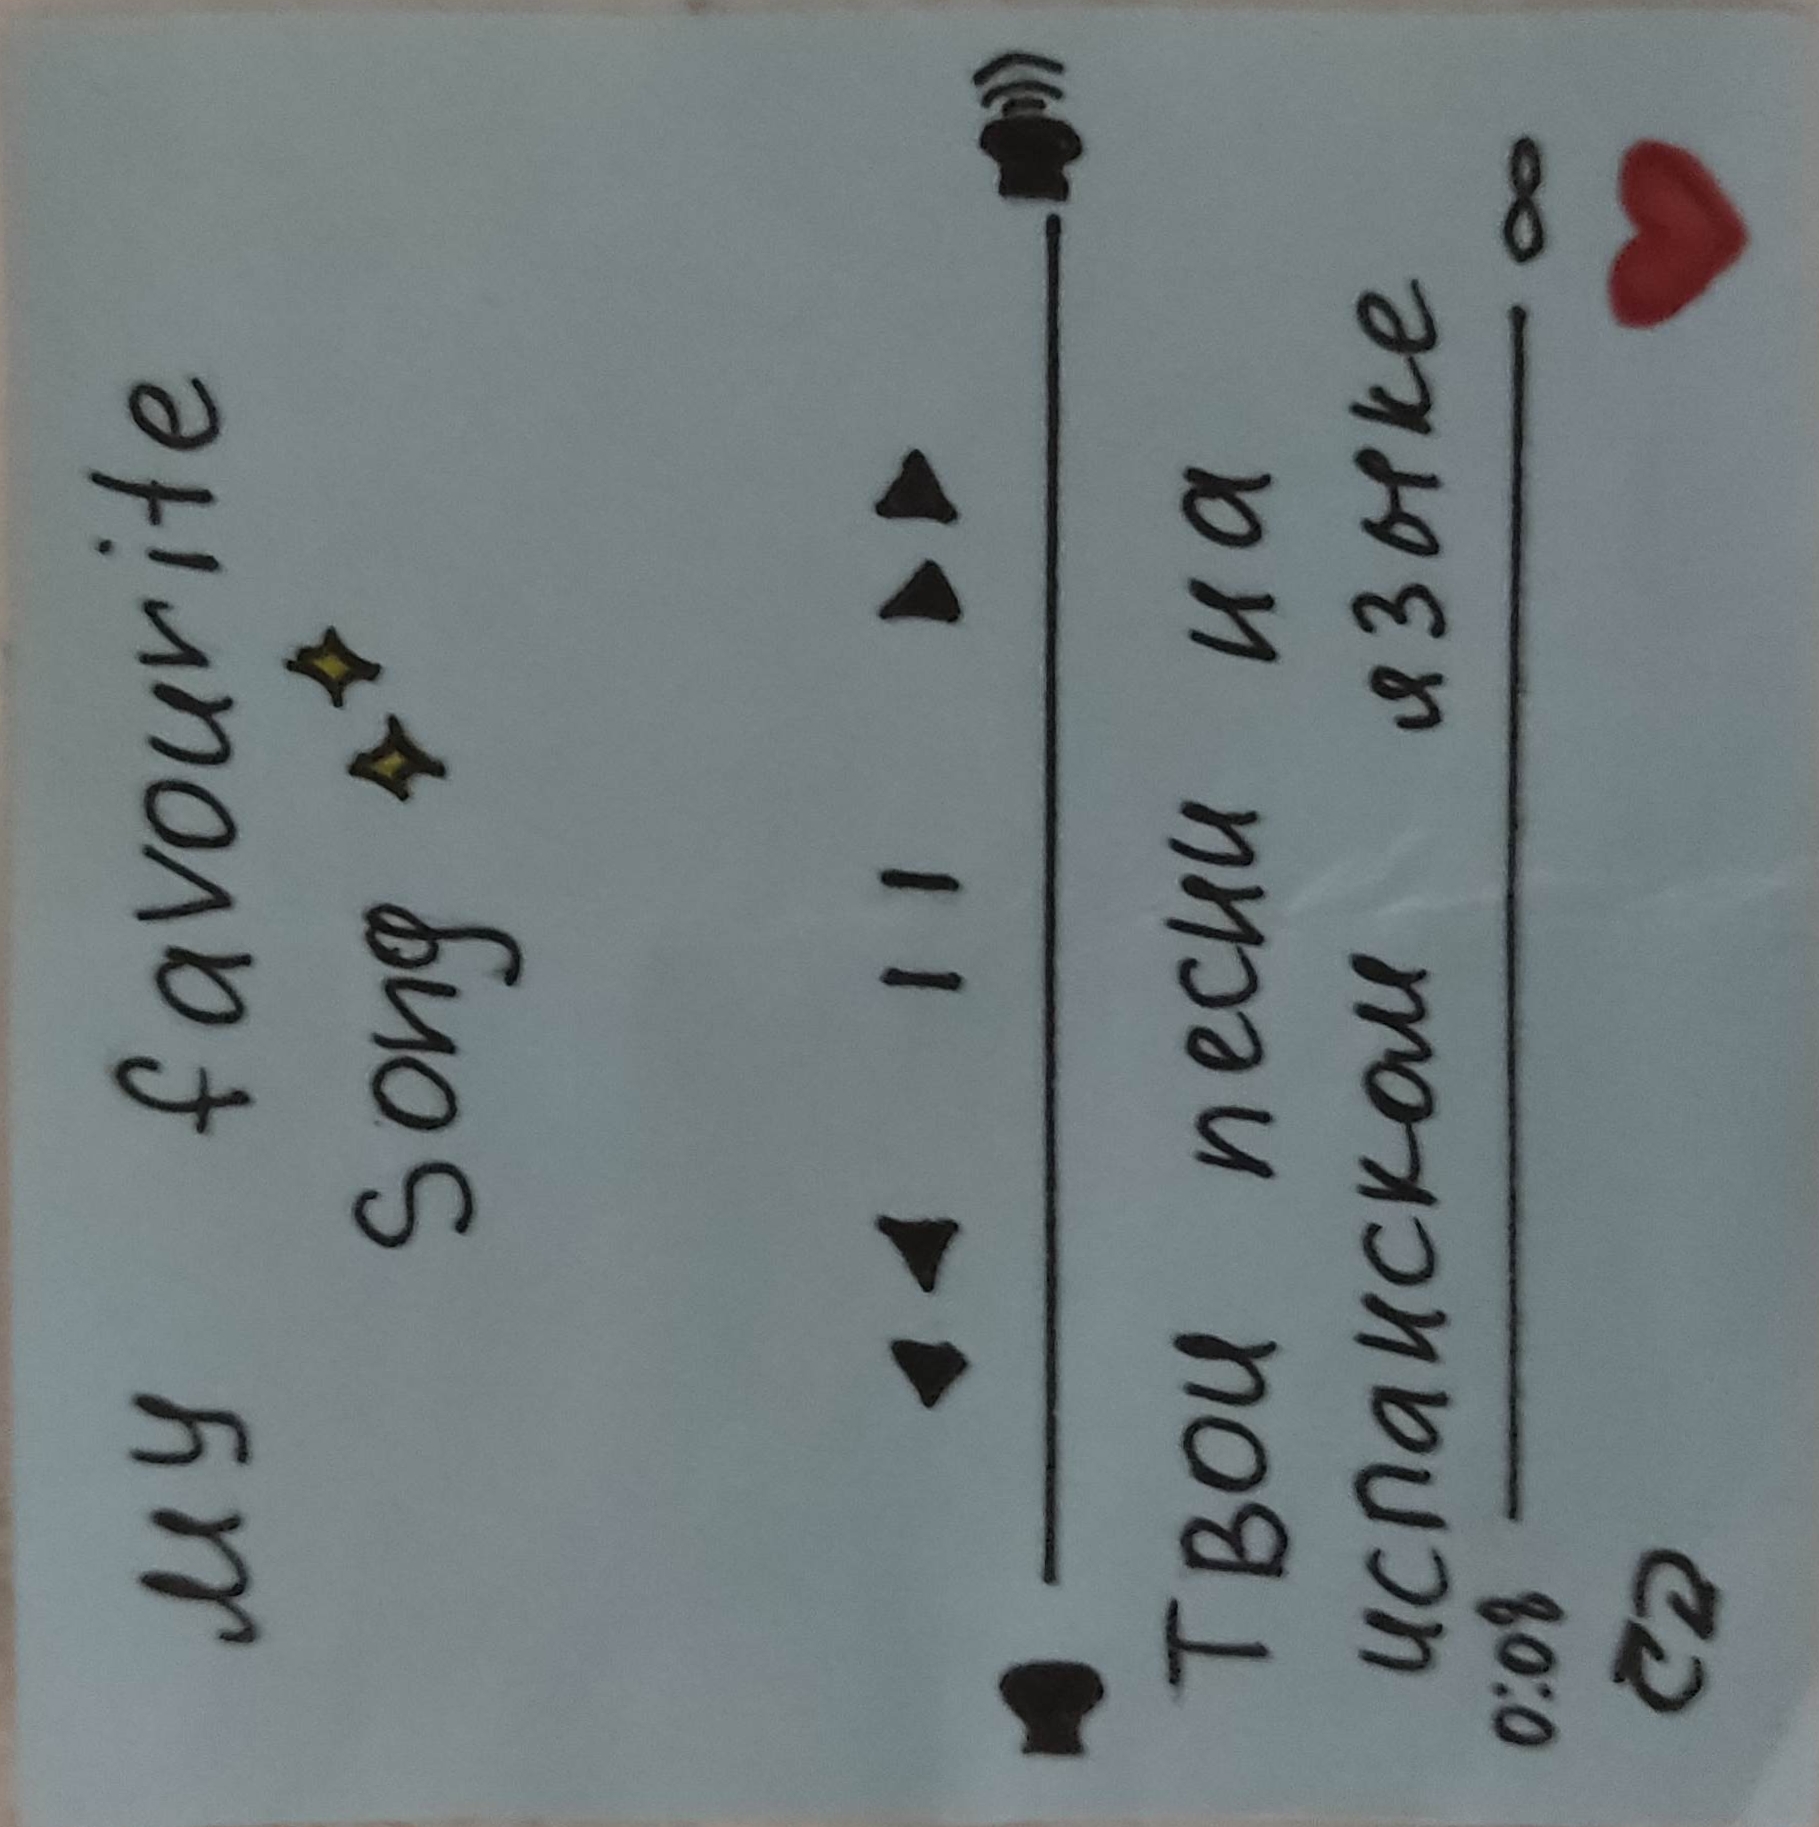 My favourite
song
Твои песни на
испанском языке
0:08 ∞